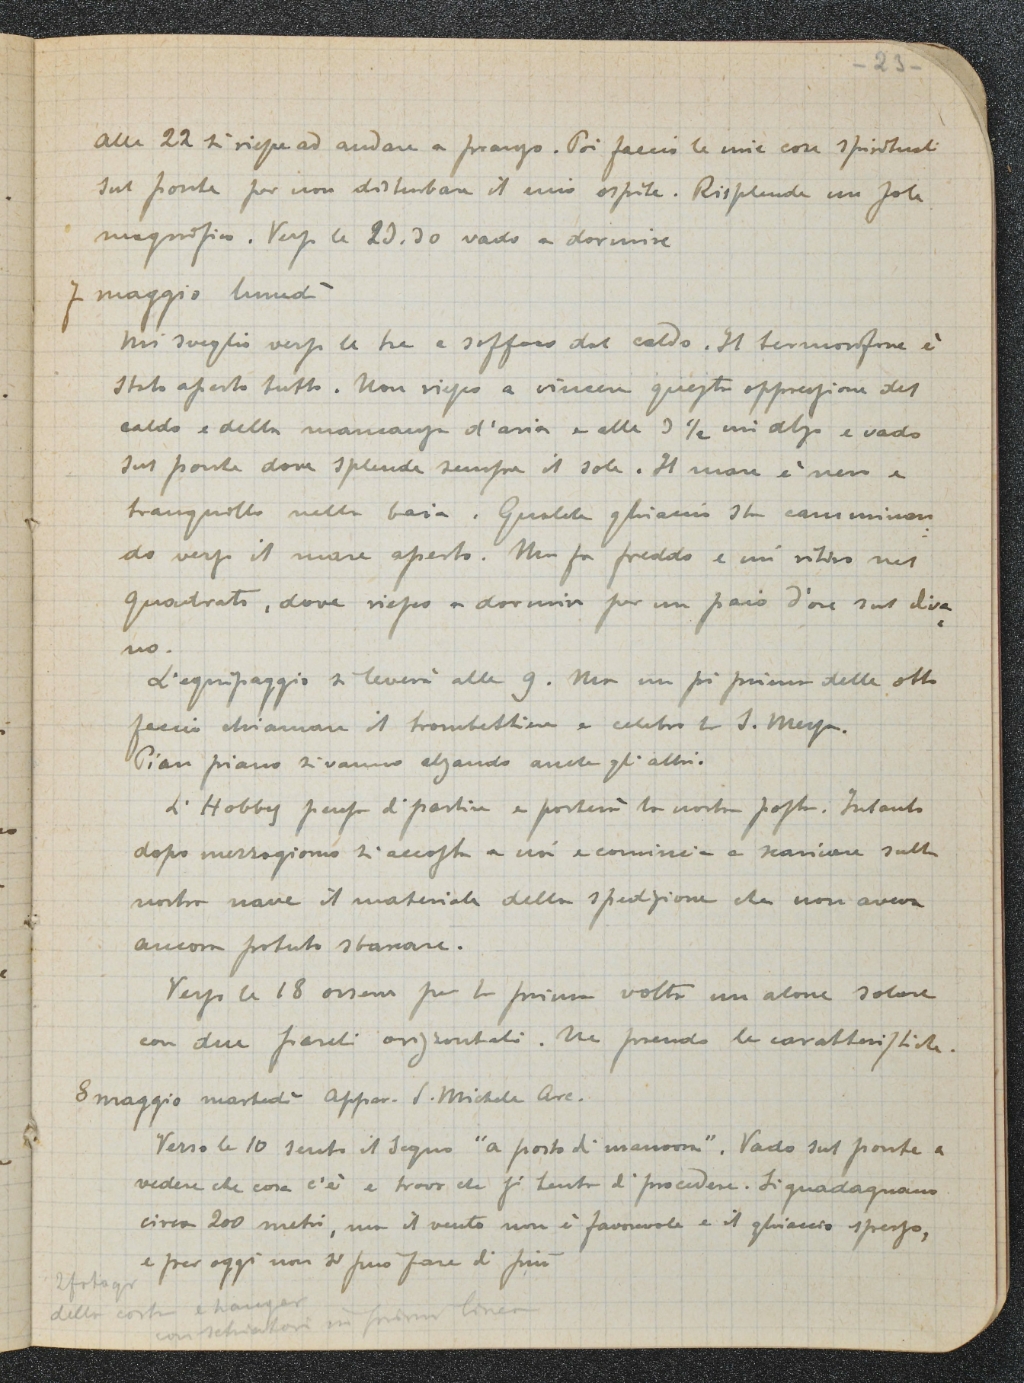 - 23 -
alle 22 si riesce ad andare a pranzo. Poi faccio le mie cose spirituali
sul ponte per non disturbare il mio ospite. Risplende un sole
magnifico. Verso le 23.30 vado a dormire
7 maggio lunedì
Mi sveglio verso le tre e soffoco dal caldo. Il termosifone è
stato aperto tutto. Non riesco a vincere questa oppressione del
caldo e della mancanza d'aria e alle 3 ½ mi alzo e vado
sul ponte dove splende sempre il sole. Il mare è nero e
tranquillo nella baia. Qualche ghiaccio sta camminan=
do verso il mare aperto. Ma fa freddo e mi ritiro nel
quadrato, dove riesco a dormire per un paio d'ore sul diva=
no.
L'equipaggio si leverà alle 9. Ma un pò prima delle otto
faccio chiamare il trombettiere e celebro la S. Messa.
Pian piano si vanno alzando anche gli altri.
L'Hobby pensa di partire e porterà la nostra posta. Intanto
dopo mezzogiorno si accosta a noi e comincia a scaricare sulla
nostra nave il materiale della spedizione che non aveva
ancora potuto sbarcare.
Verso le 18 osservo per la prima volta un alone solare
con due pareli orizzontali. Ne prendo le caratteristiche.
8 maggio martedì Appar. S. Michele Arc.
Verso le 10 sento il segno "a posto di manovra". Vado sul ponte a
vedere che cosa c'è e trovo che si tenta di procedere. Si guadagnano
circa 200 metri, ma il vento non è favorevole e il ghiaccio spesso,
e per oggi non si può fare di più
2 fotogr
della costa e hangar
con schiatori in prima linea